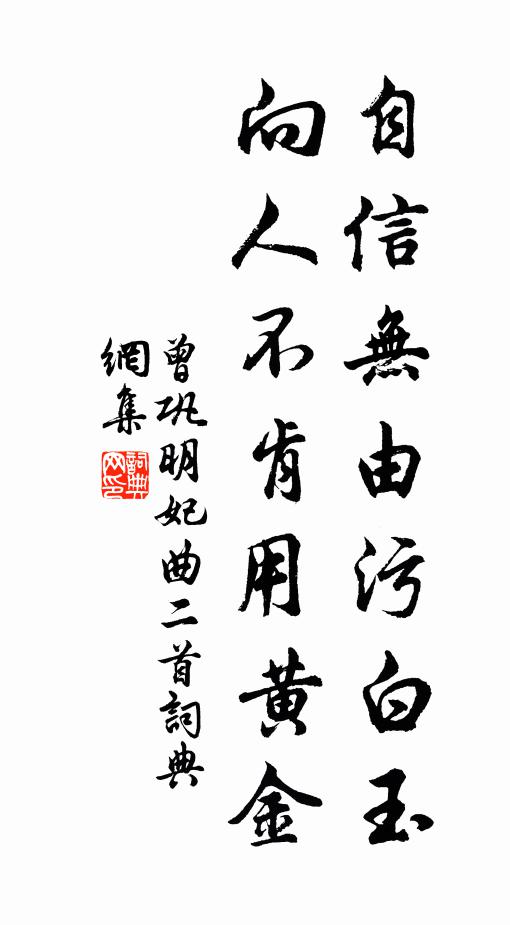 自信無由污白玉
向人不肯用黃金
曾巩明妃曲二首詞典
網集
詞典
网印